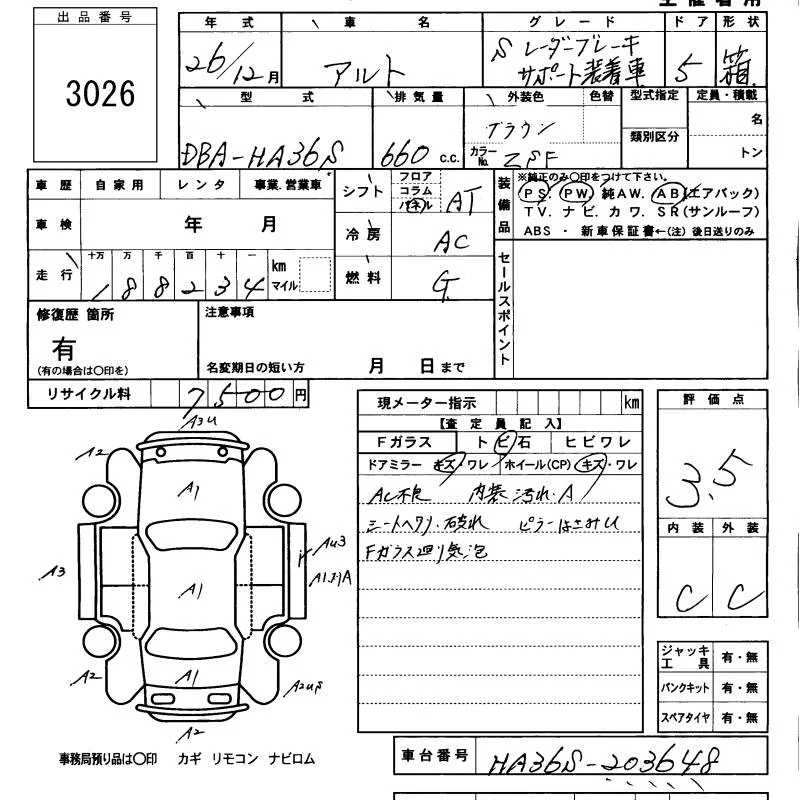 主催者用
出品番号
3026
年式 車名 グレード ドア 形状
26/12月 アルト S レーダーブレーキ サポート装着車 5 箱
型式 排気量 外装色 色替 型式指定 定員・積載
DBA-HA36S 660 c.c. ブラウン カラーNo. ZSF 類別区分 名 トン
車歴 自家用 レンタ 事業、営業車
車検 年 月
走行 十万 万 千 百 十 一 km マイル
188234
シフト フロア コラム パネル AT
冷房 AC
燃料 G
装備品 ※純正のみ〇印をつけて下さい。
PS. PW 純AW. AB(エアバック)
TV. ナビ. カワ. SR(サンルーフ)
ABS ・ 新車保証書←(注) 後日送りのみ
セールスポイント
修復歴 箇所
有
(有の場合は〇印を)
注意事項
名変期日の短い方 月 日まで
リサイクル料 7500円
現メーター指示 km
【査定員記入】
Fガラス トビ石 ヒビワレ
ドアミラー キズ・ワレ ホイール(CP) キズ・ワレ
AC不良 内装汚れ・A
シートヘタリ・破れ ピラーはさみU
Fガラス廻り気泡
評価点
3.5
内装 外装
C C
ジャッキ工具 有・無
パンクキット 有・無
スペアタイヤ 有・無
A3U
A2
A1
A3
A1
AU3
A2
A1
A2
事務局預り品は〇印 カギ リモコン ナビロム
車台番号 HA36S-203648